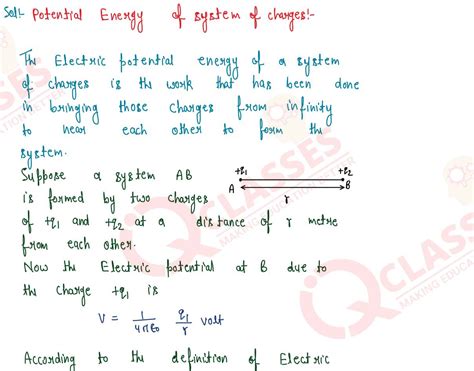 Sol:- Potential Energy of system of charges!-
The Electric potential energy of a system
of charges is the work that has been done
in bringing those Charges from infinity
to near each other to form the
system.
Suppose a system AB
is formed by two charges
of +q1 and +q2 at a distance of r metre
from each other.
+q1 +q2
A B
r
Now the Electric potential at B due to
the charge +q1 is
V = 1/4πε0 q1/r volt
According to the definition of Electric
IQ CLASSES
MAKING EDUCATION BETTER
CLASSES
MAKING EDUCA